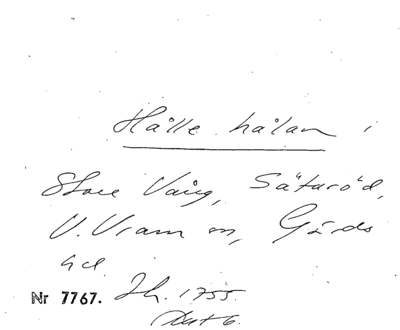 Hålle hålan i
Store Vång, Sätaröd,
V. Vram sn, Gärds
hd.
Nr 7767. Jh. 1755.